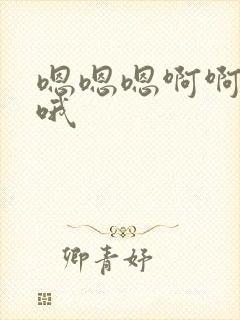 嗯嗯嗯啊啊
哦
卿青妤